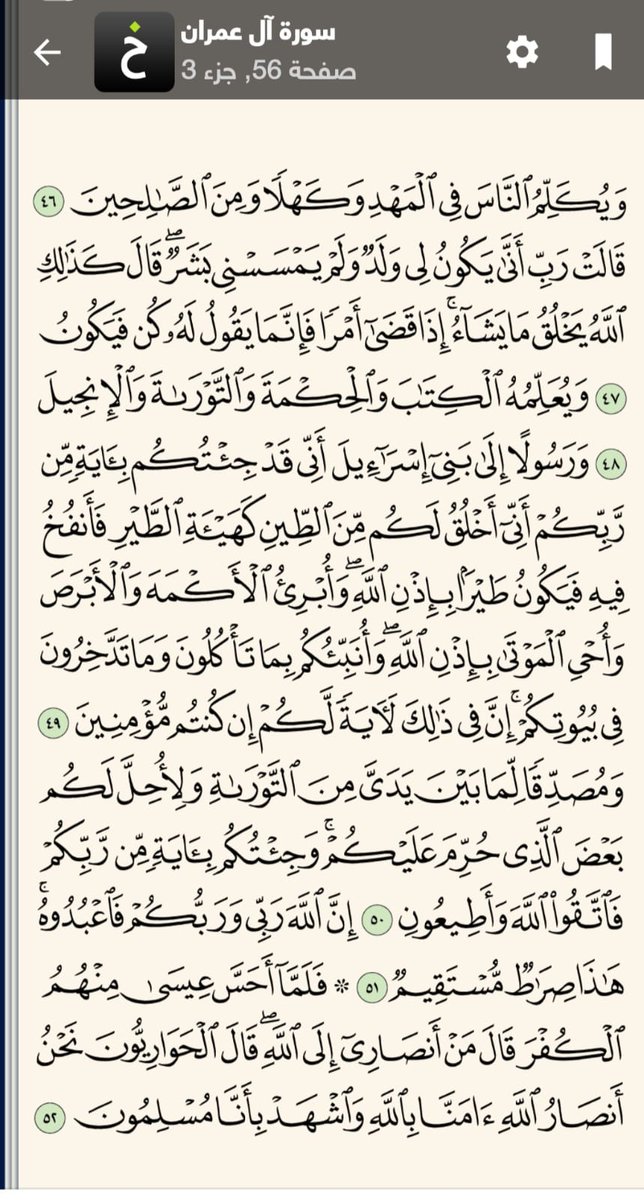 سورة آل عمران
صفحة 56, جزء 3
خ
وَيُكَلِّمُ ٱلنَّاسَ فِي ٱلۡمَهۡدِ وَكَهۡلٗا وَمِنَ ٱلصَّٰلِحِينَ ٤٦
قَالَتۡ رَبِّ أَنَّىٰ يَكُونُ لِي وَلَدٞ وَلَمۡ يَمۡسَسۡنِي بَشَرٞۖ قَالَ كَذَٰلِكِ
ٱللَّهُ يَخۡلُقُ مَا يَشَآءُۚ إِذَا قَضَىٰٓ أَمۡرٗا فَإِنَّمَا يَقُولُ لَهُۥ كُن فَيَكُونُ
٤٧ وَيُعَلِّمُهُ ٱلۡكِتَٰبَ وَٱلۡحِكۡمَةَ وَٱلتَّوۡرَىٰةَ وَٱلۡإِنجِيلَ
٤٨ وَرَسُولًا إِلَىٰ بَنِيٓ إِسۡرَٰٓءِيلَ أَنِّي قَدۡ جِئۡتُكُم بِـَٔايَةٖ مِّن
رَّبِّكُمۡ أَنِّيٓ أَخۡلُقُ لَكُم مِّنَ ٱلطِّينِ كَهَيۡـَٔةِ ٱلطَّيۡرِ فَأَنفُخُ
فِيهِ فَيَكُونُ طَيۡرَۢا بِإِذۡنِ ٱللَّهِۖ وَأُبۡرِئُ ٱلۡأَكۡمَهَ وَٱلۡأَبۡرَصَ
وَأُحۡيِ ٱلۡمَوۡتَىٰ بِإِذۡنِ ٱللَّهِۖ وَأُنَبِّئُكُم بِمَا تَأۡكُلُونَ وَمَا تَدَّخِرُونَ
فِي بُيُوتِكُمۡۚ إِنَّ فِي ذَٰلِكَ لَأٓيَةٗ لَّكُمۡ إِن كُنتُم مُّؤۡمِنِينَ ٤٩
وَمُصَدِّقٗا لِّمَا بَيۡنَ يَدَيَّ مِنَ ٱلتَّوۡرَىٰةِ وَلِأُحِلَّ لَكُم
بَعۡضَ ٱلَّذِي حُرِّمَ عَلَيۡكُمۡۚ وَجِئۡتُكُم بِـَٔايَةٖ مِّن رَّبِّكُمۡ
فَٱتَّقُواْ ٱللَّهَ وَأَطِيعُونِ ٥٠ إِنَّ ٱللَّهَ رَبِّي وَرَبُّكُمۡ فَٱعۡبُدُوهُۚ
هَٰذَا صِرَٰطٞ مُّسۡتَقِيمٞ ٥١ * فَلَمَّآ أَحَسَّ عِيسَىٰ مِنۡهُمُ
ٱلۡكُفۡرَ قَالَ مَنۡ أَنصَارِيٓ إِلَى ٱللَّهِۖ قَالَ ٱلۡحَوَارِيُّونَ نَحۡنُ
أَنصَارُ ٱللَّهِ ءَامَنَّا بِٱللَّهِ وَٱشۡهَدۡ بِأَنَّا مُسۡلِمُونَ ٥٢